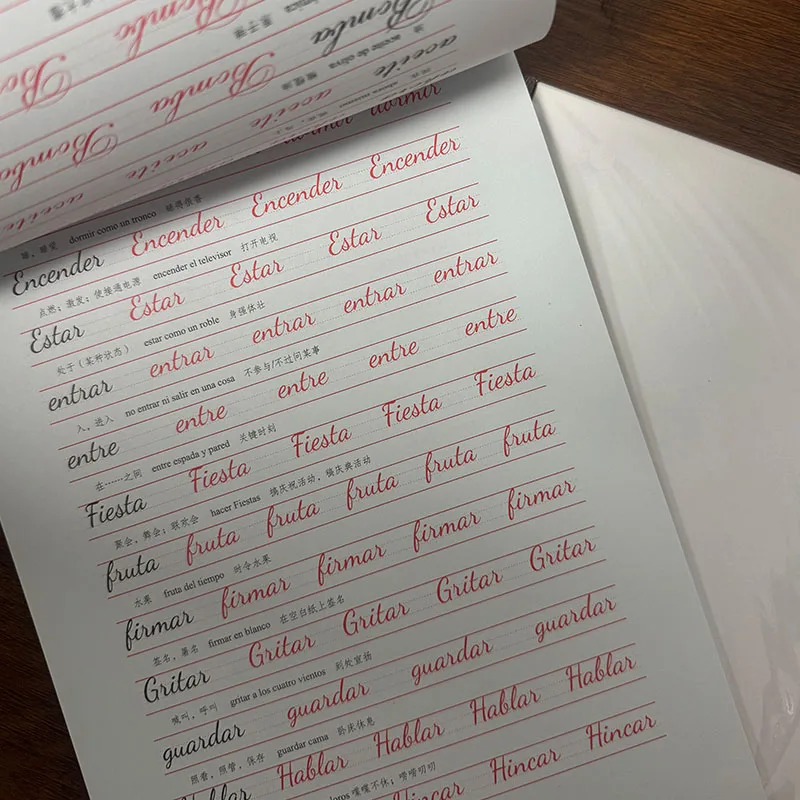 Bomba Bomba Bomba
aceite aceite aceite aceite
aceite de oliva 橄榄油
dormir dormir
睡，睡觉 dormir como un tronco 睡得很香
Encender Encender Encender Encender
点燃；激发；使接通电源 encender el televisor 打开电视
Estar Estar Estar Estar Estar
处于（某种状态） estar como un roble 身强体壮
entrar entrar entrar entrar entrar
入，进入 no entrar ni salir en una cosa 不参与/不过问某事
entre entre entre entre entre
在……之间 entre espada y pared 关键时刻
Fiesta Fiesta Fiesta Fiesta Fiesta
聚会，舞会；联欢会 hacer Fiestas 搞庆祝活动，搞庆典活动
fruta fruta fruta fruta fruta fruta
水果 fruta del tiempo 时令水果
firmar firmar firmar firmar firmar
签名，署名 firmar en blanco 在空白纸上签名
Gritar Gritar Gritar Gritar Gritar
喊叫，呼叫 gritar a los cuatro vientos 到处宣扬
guardar guardar guardar guardar
照看，照管，保存 guardar cama 卧床休息
Hablar Hablar Hablar Hablar Hablar
loros 喋喋不休；唠唠叨叨
Hincar Hincar Hincar